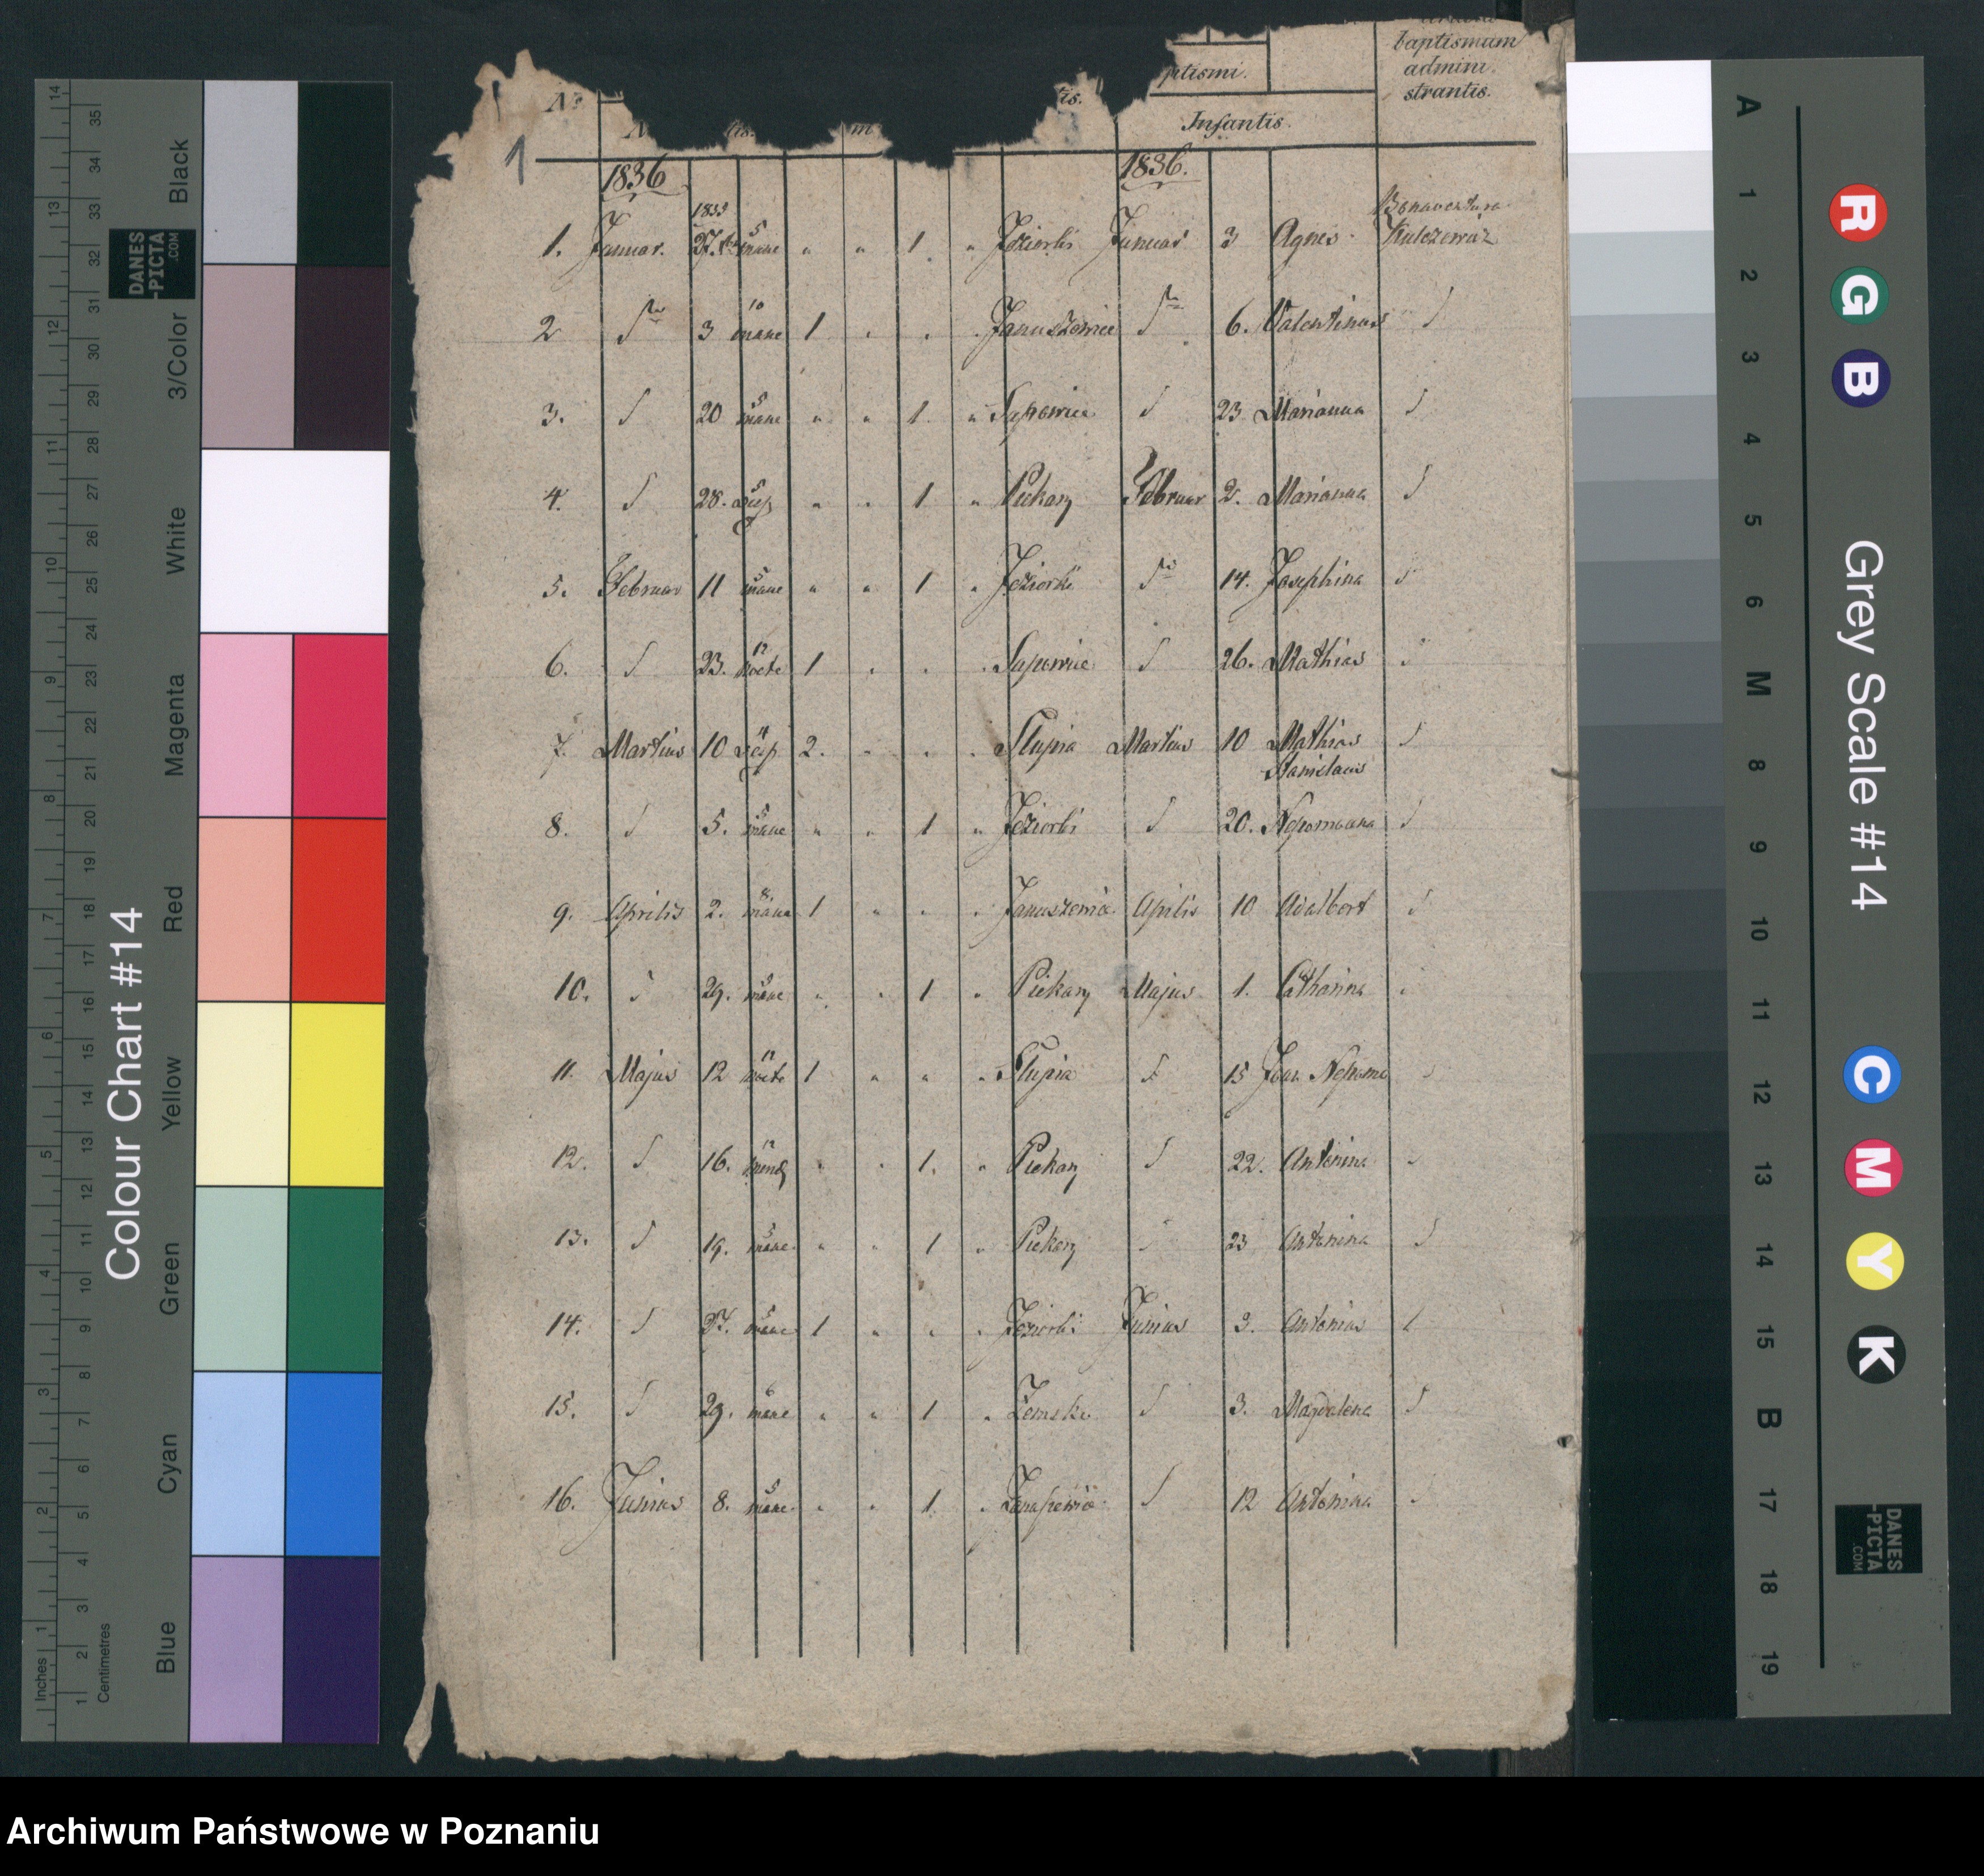 baptismum
ptismi. admini.
strantis.
No tis.
Infantis.
1
1836 1836.
1833
Bonaventura
1. Januar. 27. 5 mane " " 1 " Jeziorki Januar 3 Agnes
2 3 10 mane 1 Januszewice 6. Valentinus
3. 20 5 mane " " 1. " Sapowice 23 Marianna
4. 28. 5 " " 1 " Piekary Februar 2. Marianna
5. Februar 11 5 mane " " 1 " Jeziorki 14. Josephina
6. 23. 12 nocte 1 Sapowice 26. Mathias
7. Martius 10 4 2. Słupia Martius 10 Mathias
Stanislaus
8. 5. 5 mane " " 1 " Jeziorki 20. Nepomucena
9. Aprilis 2. 8 mane 1 Aprilis 10 Adalbert
10. 29. mane " " 1 " Piekary Majus 1. Catharina
11. Majus 12 nocte 1 " " " Słupia 15 Joan Nepom
12. 16. 12 " " 1. " Piekary 22. Antonina
13. 19. 5 mane " " 1 " Piekary 23 Antonina
14. 27. 5 mane 1 " " " Jeziorki Junius 3. Antonius
15. 29. 6 mane " " 1 " 3. Magdalena
16. Junius 8. 5 mane " " 1. " 12 Antonina
Colour Chart #14
Black
3/Color
White
Magenta
Red
Yellow
Green
Cyan
Blue
Inches
Centimetres
DANES
-PICTA
.COM
Grey Scale #14
R
G
B
C
M
Y
K
A
1
2
3
4
5
6
M
8
9
10
11
12
13
14
15
B
17
18
19
DANES
-PICTA
.COM
Archiwum Państwowe w Poznaniu